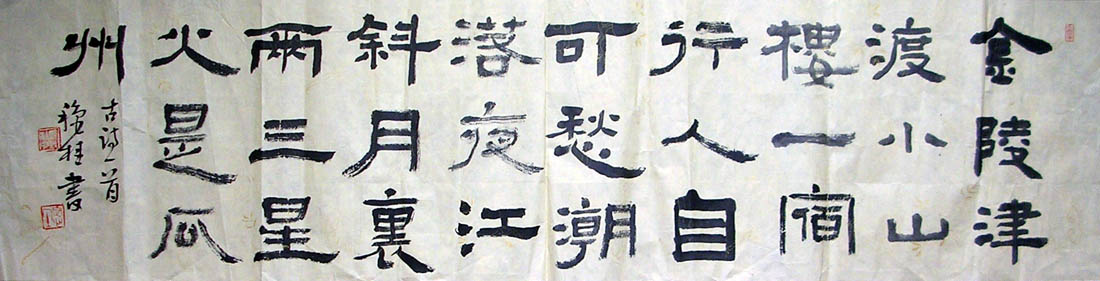 金陵津
渡小山
樓一宿
行人自
可愁潮
落夜江
斜月裏
兩三星
火是瓜
州
古詩一首
程書